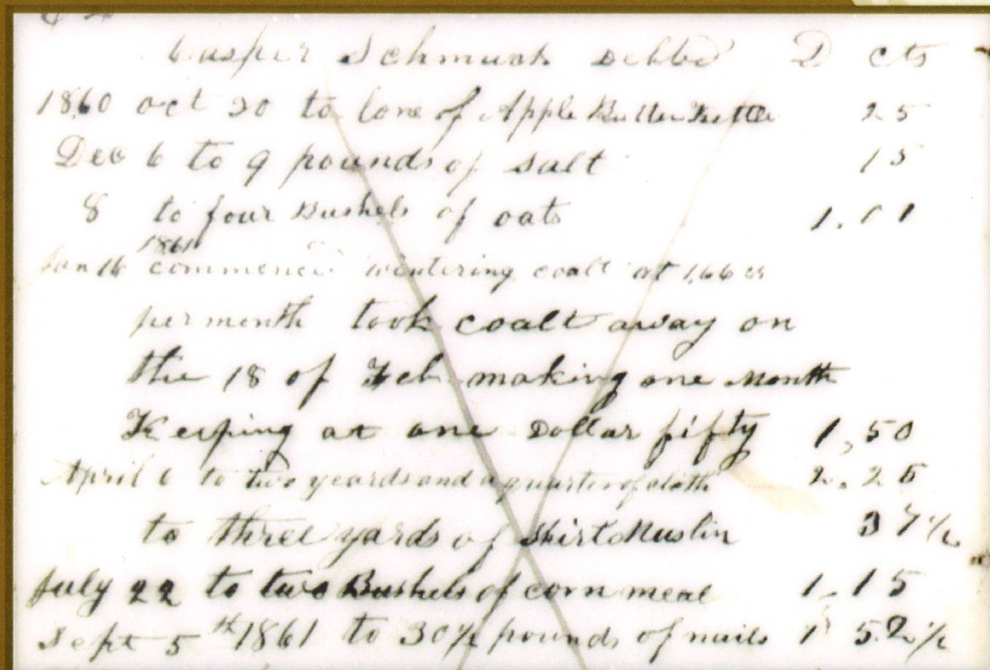 Casper Schmunk Debtd D cts
1860 oct 20 to lone of Apple Butter Kettle 25
Dec 6 to 9 pounds of salt 15
8 to four Bushels of oats 1.11
1861
Jan 16 commence wintering coalt at 1,66 cts
per month took coalt away on
the 18 of Feb making one Month
Keeping at one Dollar fifty 1,50
April 6 to two yeards and a quarter of cloth 2.25
to three yards of shirt Muslin 37½
July 22 to two Bushels of corn meal 1.15
Sept 5th 1861 to 30½ pounds of nails 1 52½